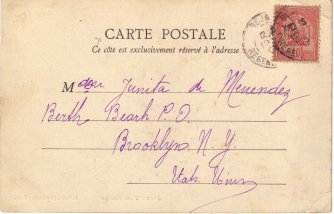 CARTE POSTALE
Ce côté est exclusivement réservé à l'adresse
BEJA
Mdme Junita de Menendez
Berth Beach P.O.
Brooklyn. N. Y.
Etats Unis
REGENCE